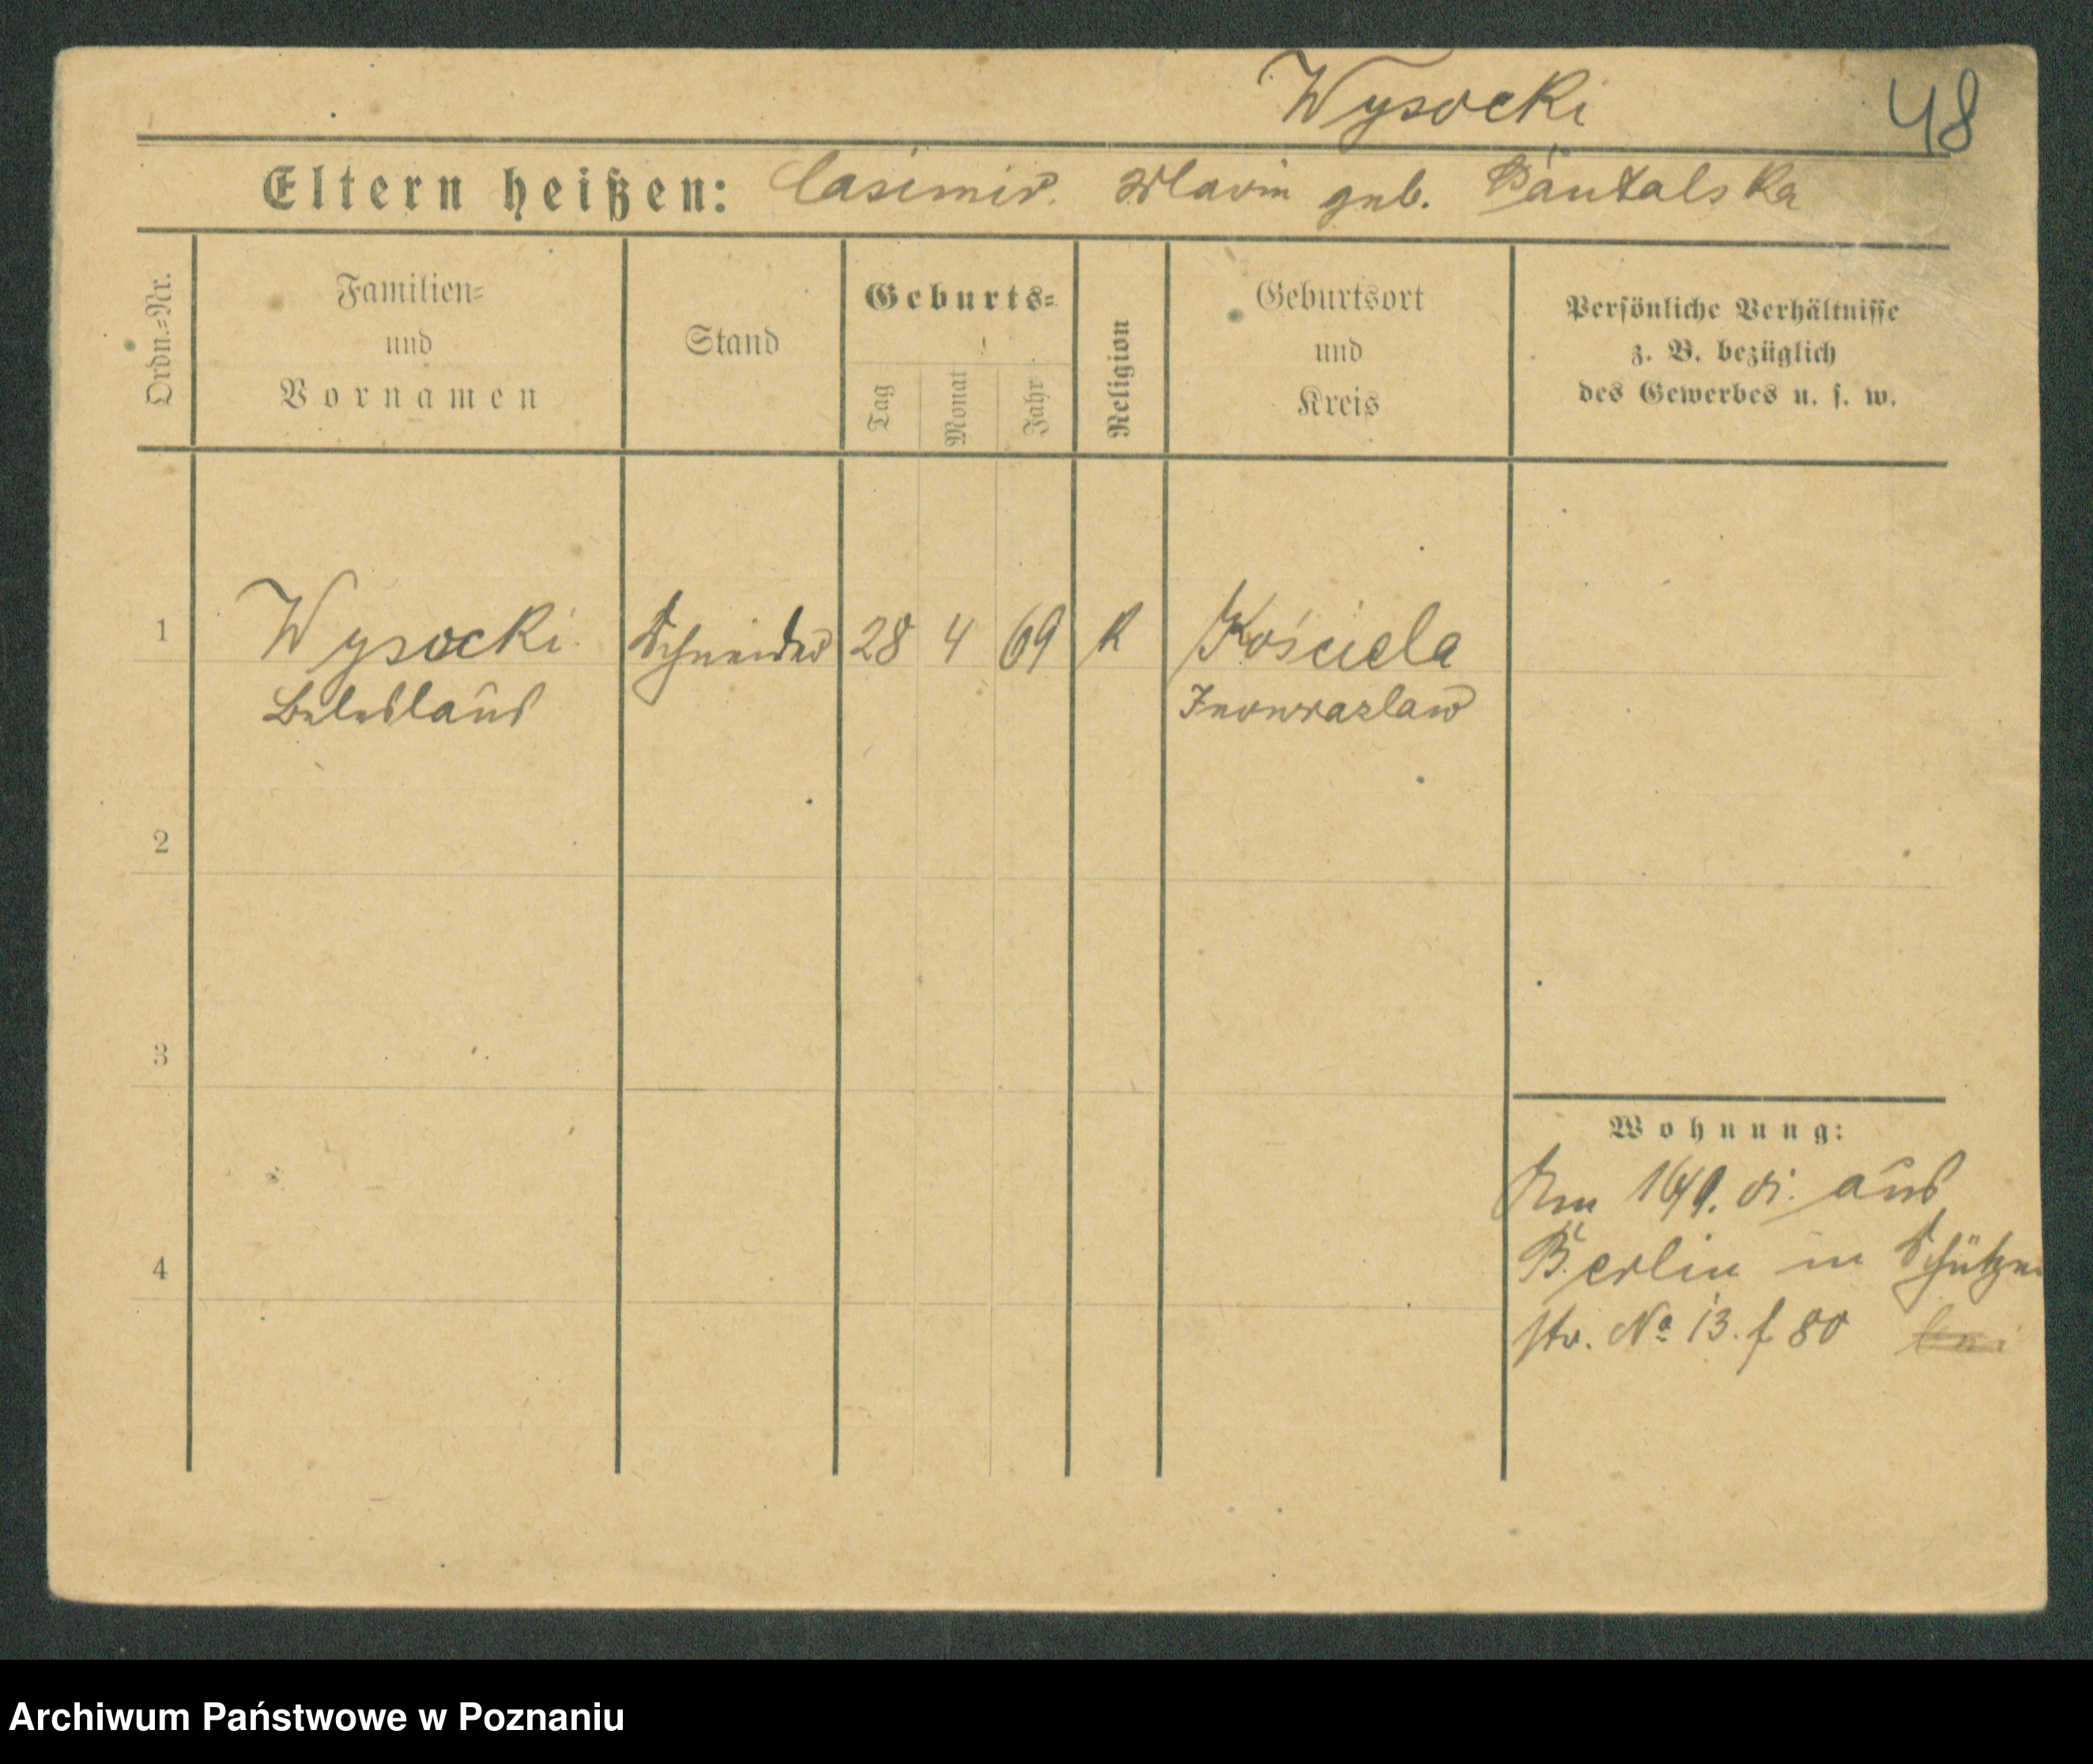 Wysocki
48
Eltern heißen: Casimir. Marie geb. Pantalska
Ordn.=Nr.
Familien=
und
Vornamen
Stand
Geburts=
Tag
Monat
Jahr
Religion
Geburtsort
und
Kreis
Persönliche Verhältnisse
z. B. bezüglich
des Gewerbes u. s. w.
1 Wysocki Schneider 28 4 69 K Kościela
Boleslaus Inowrazlaw
2
3
4
Wohnung:
Am aus
Berlin in Schützen
str. No 13. f 80
Archiwum Państwowe w Poznaniu